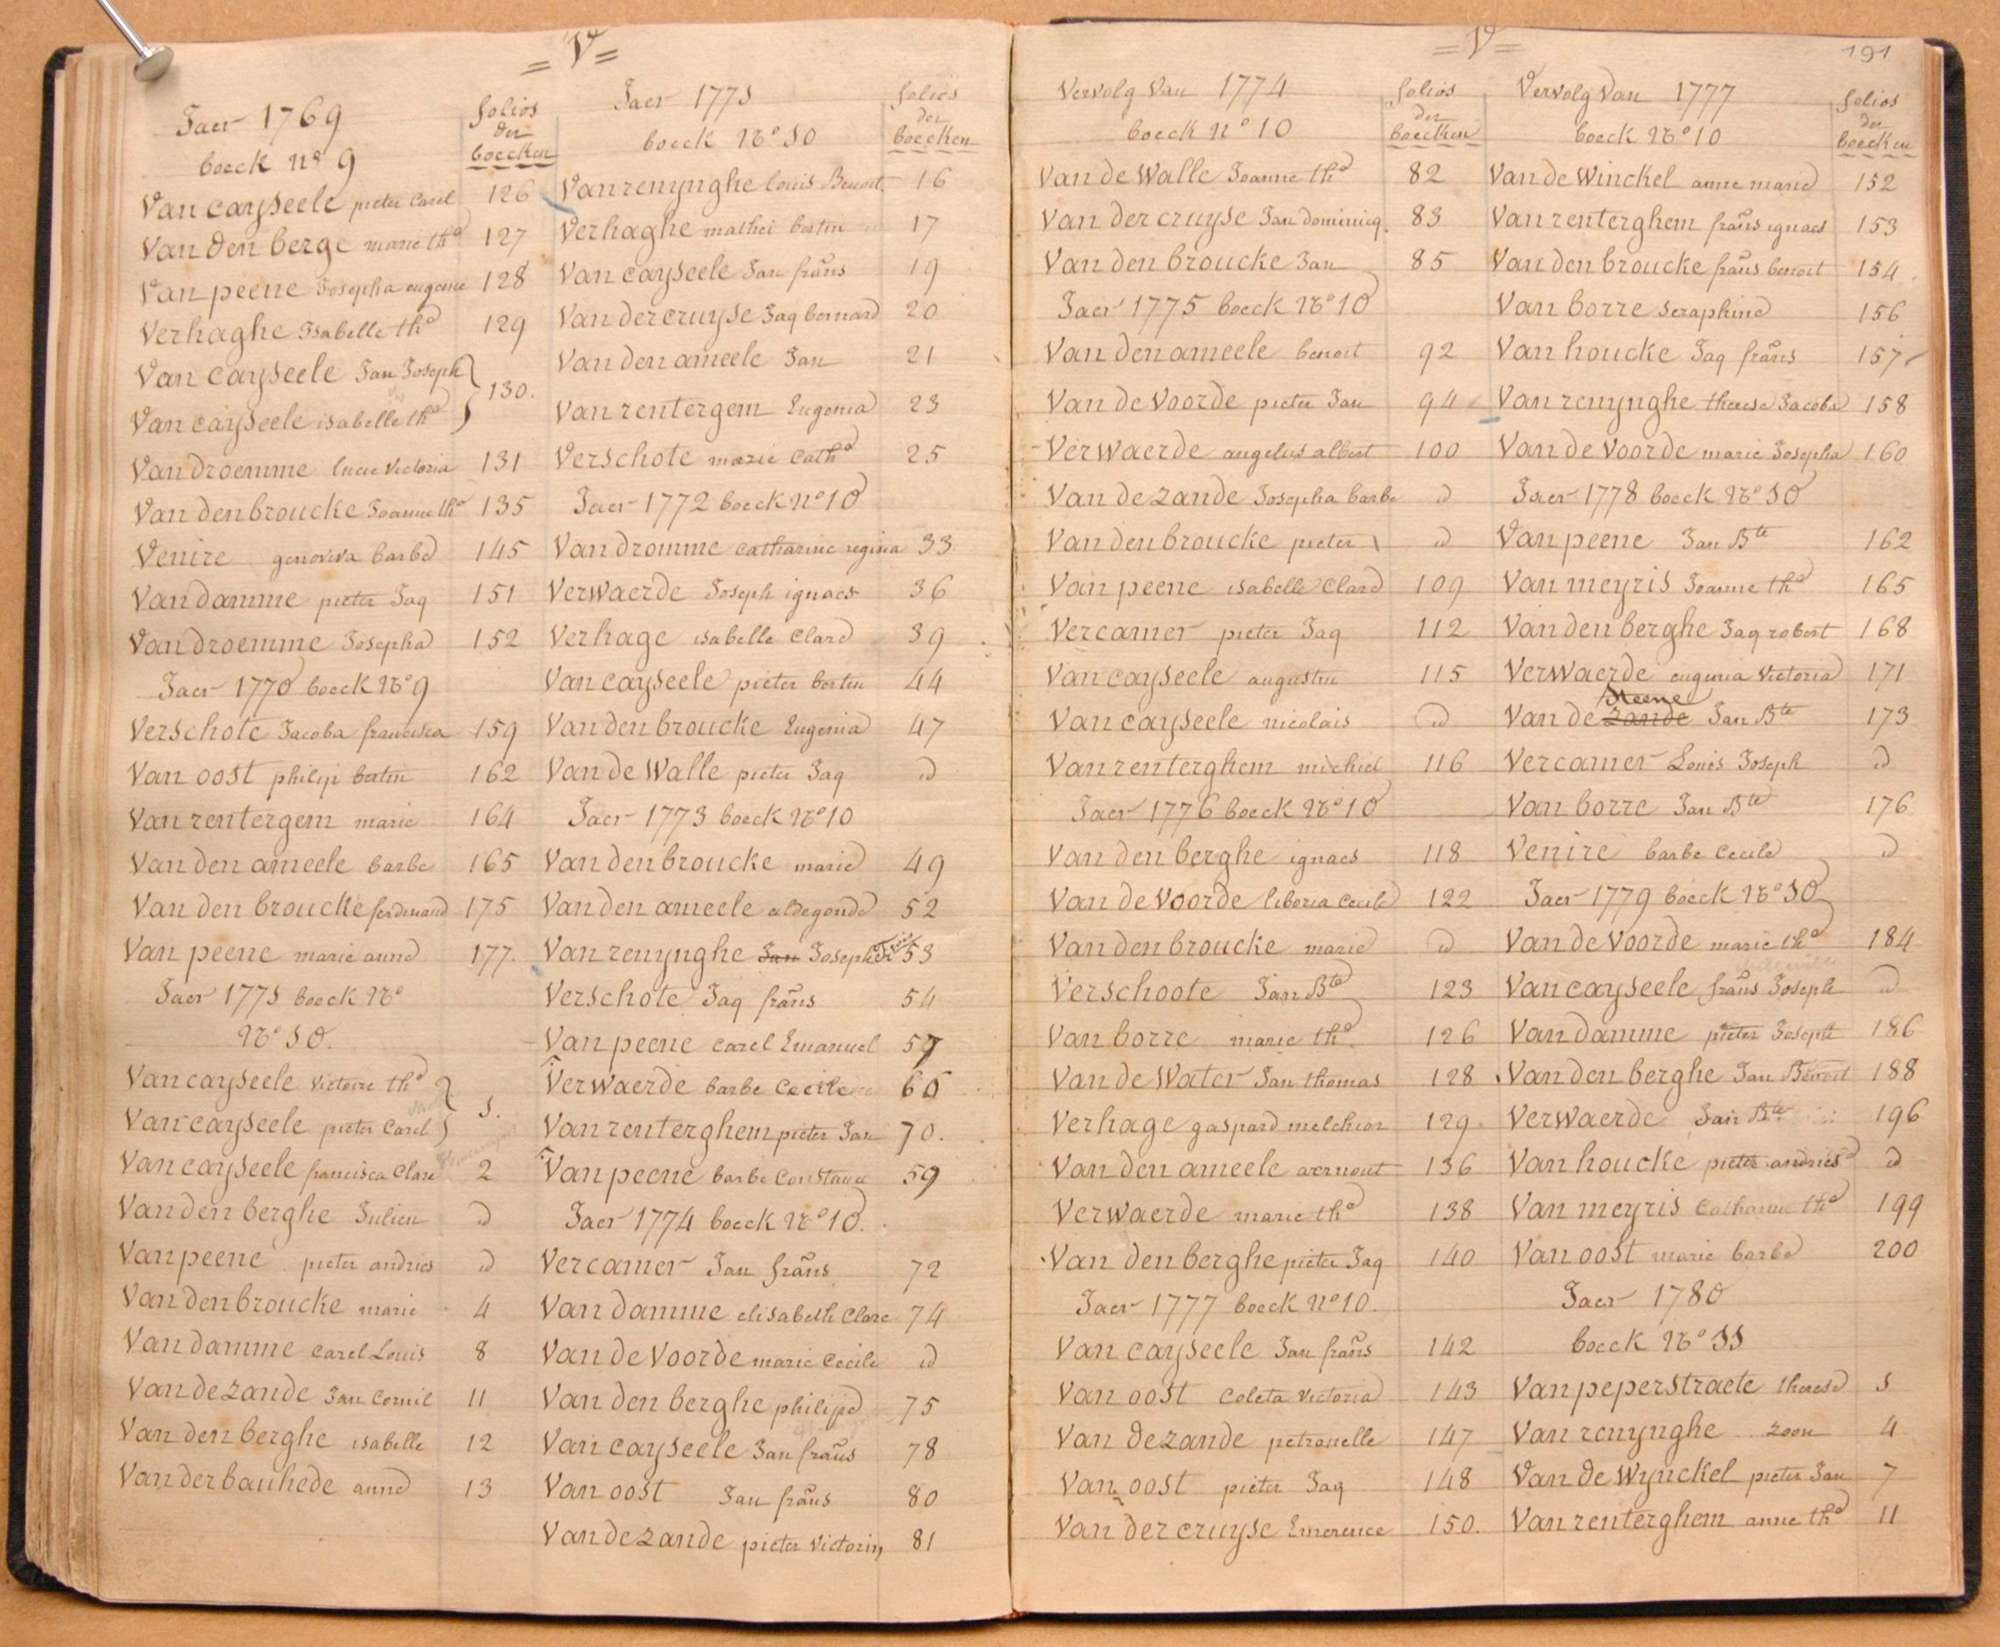 = V =
Jaer 1769
boeck No 9
folios
der
boecken
Van cayseele pieter Carel 126
Van den berge marie tha 127
Van peene Josepha eugenie 128
Verhaghe Isabelle tha 129
Van cayseele Jan Joseph
130.
Van cayseele isabelle tha
Van droemme lucie Victoria 131
Van den broucke Joanne tha 135
Venire genoviva barbe 145
Van damme pieter Jaq 151
Van droemme Josepha 152
Jaer 1770 boeck No 9
Verschote Jacoba francisca 159
Van oost philip bertin 162
Van rentergem marie 164
Van den ameele barbe 165
Van den broucke ferdinand 175
Van peene marie anne 177.
Jaer 1771 boeck No
No 10.
Van cayseele Victoire tha
1.
Van cayseele pieter Carel
Van cayseele francisca Clare 2
Van den berghe Julien id
Van peene pieter andries id
Van den broucke marie 4
Van damme Carel Louis 8
Van de zande Jan Cornil 11
Van den berghe isabelle 12
Van der bauhede anne 13
Jaer 1771
boeck No 10
folios
der
boecken
Van renynghe louis Benoit 16
Verhaghe mathei bertin 17
Van cayseele Jan frans 19
Van der cruyse Jaq bernard 20
Van den ameele Jan 21
Van rentergem Eugenia 23
Verschote marie Catha 25
Jaer 1772 boeck No 10
Van dromme catharine regina 33
Verwaerde Joseph ignaes 36
Verhage isabelle Clare 39
Van cayseele pieter bertin 44
Van den broucke Eugenia 47
Van de Walle pieter Jaq id
Jaer 1773 boeck No 10
Van den broucke marie 49
Van den ameele aldegonde 52
Van renynghe Jan Joseph 53
Verschote Jaq frans 54
Van peene carel Emanuel 57
Verwaerde barbe Cecile 60
Van renterghem pieter Jan 70.
Van peene barbe Constance 59
Jaer 1774 boeck No 10.
Vercamer Jan frans 72
Van damme elisabeth Clare 74
Van de Voorde marie Cecile id
Van den berghe philipe 75
Van cayseele Jan frans 78
Van oost Jan frans 80
Van de zande pieter Victorin 81
= V =
191
Vervolg Van 1774
boeck No 10
folios
der
boecken
Van de Walle Joanne tha 82
Van der cruyse Jan dominicq. 83
Van den broucke Jan 85
Jaer 1775 boeck No 10
Van den ameele benoit 92
Van de Voorde pieter Jan 94
Verwaerde angelus albert 100
Van de zande Josepha barbe id
Van den broucke pieter id
Van peene isabelle Clare 109
Vercamer pieter Jaq 112
Van cayseele augustin 115
Van cayseele nicolais id
Van renterghem michiel 116
Jaer 1776 boeck No 10
Van den berghe ignaes 118
Van de Voorde liboria Cecile 122
Van den broucke marie id
Verschoote Jan Bte 123
Van borre marie tha 126
Van de Water Jan thomas 128
Verhage gaspard melchior 129
Van den ameele aernout 136
Verwaerde marie tha 138
Van den berghe pieter Jaq 140
Jaer 1777 boeck No 10.
Van cayseele Jan frans 142
Van oost Coleta Victoria 143
Van de zande petronelle 147
Van oost pieter Jaq 148
Van der cruyse Emerence 150.
Vervolg Van 1777
boeck No 10
folios
der
boecken
Van de Winckel anne marie 152
Van renterghem frans ignaes 153
Van den broucke frans benoit 154
Van borre seraphine 156
Van houcke Jaq frans 157
Van renynghe therese Jacoba 158
Van de Voorde marie Josepha 160
Jaer 1778 boeck No 10
Van peene Jan Bte 162
Van meyris Joanne tha 165
Van den berghe Jaq robert 168
Verwaerde eugenia Victoria 171
Steene
Van de zande Jan Bte 173
Vercamer Louis Joseph id
Van borre Jan Bte 176
Venire barbe Cecile id
Jaer 1779 boeck No 10
Van de Voorde marie tha 184
Van cayseele frans Joseph id
Van damme pieter Joseph 186
Van den berghe Jan Benoit 188
Verwaerde Jan Bte 196
Van houcke pieter andries id
Van meyris Catharine tha 199
Van oost marie barbe 200
Jaer 1780
boeck No 11
Van peperstraete therese 1
Van renynghe zoon 4
Van de Wynckel pieter Jan 7
Van renterghem anne tha 11